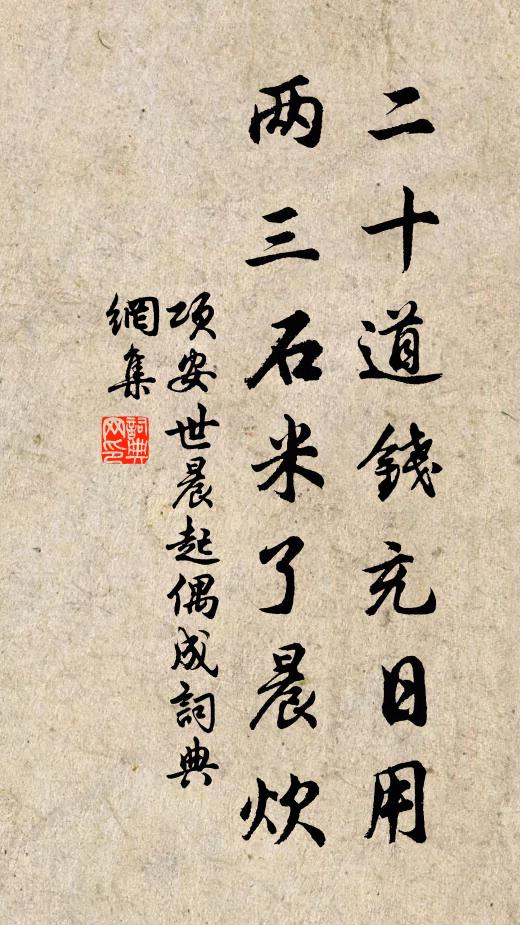 二十道錢充日用
两三石米了晨炊
项安世晨起偶成詞典
網集
詞典
网印